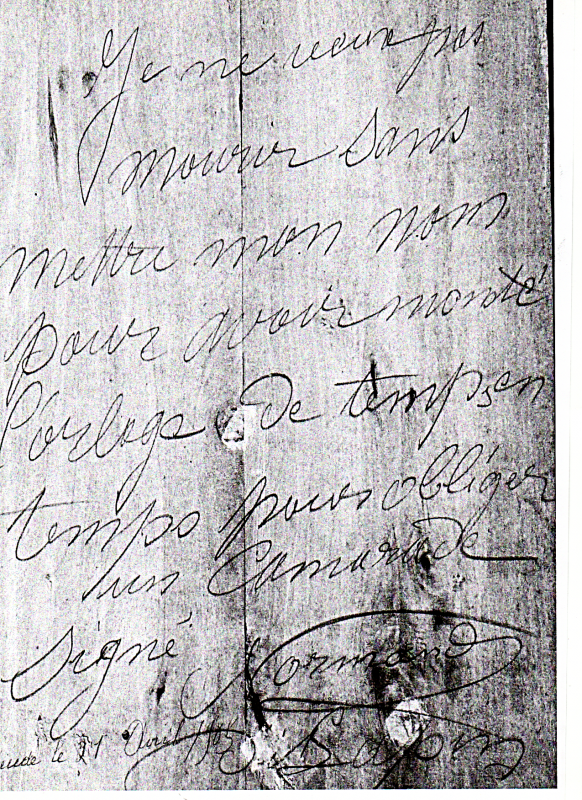 Je ne veux pas
mourir sans
mettre mon nom
pour avoir monté
l'orloge de temps en
temps pour obliger
un Camarade
Signé Normand
le 21 Avril